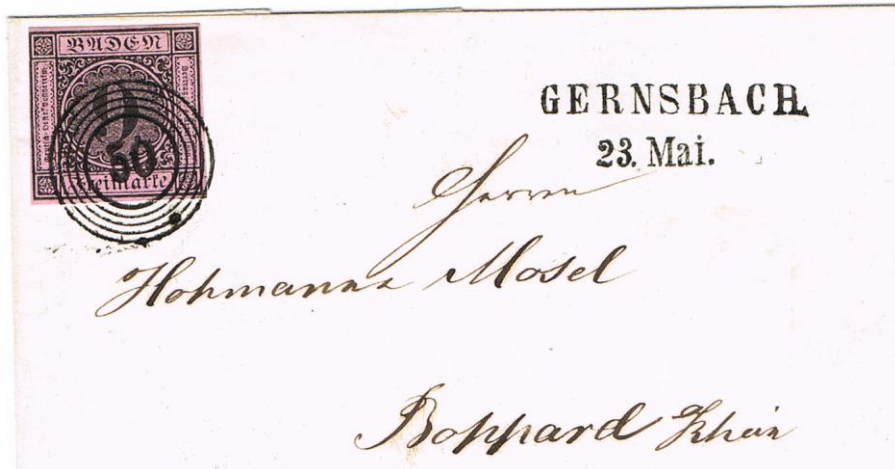 BADEN
9
Freimarke
50
GERNSBACH.
23. Mai.
Herrn
Hohmann & Mosel
Boppard Rhein